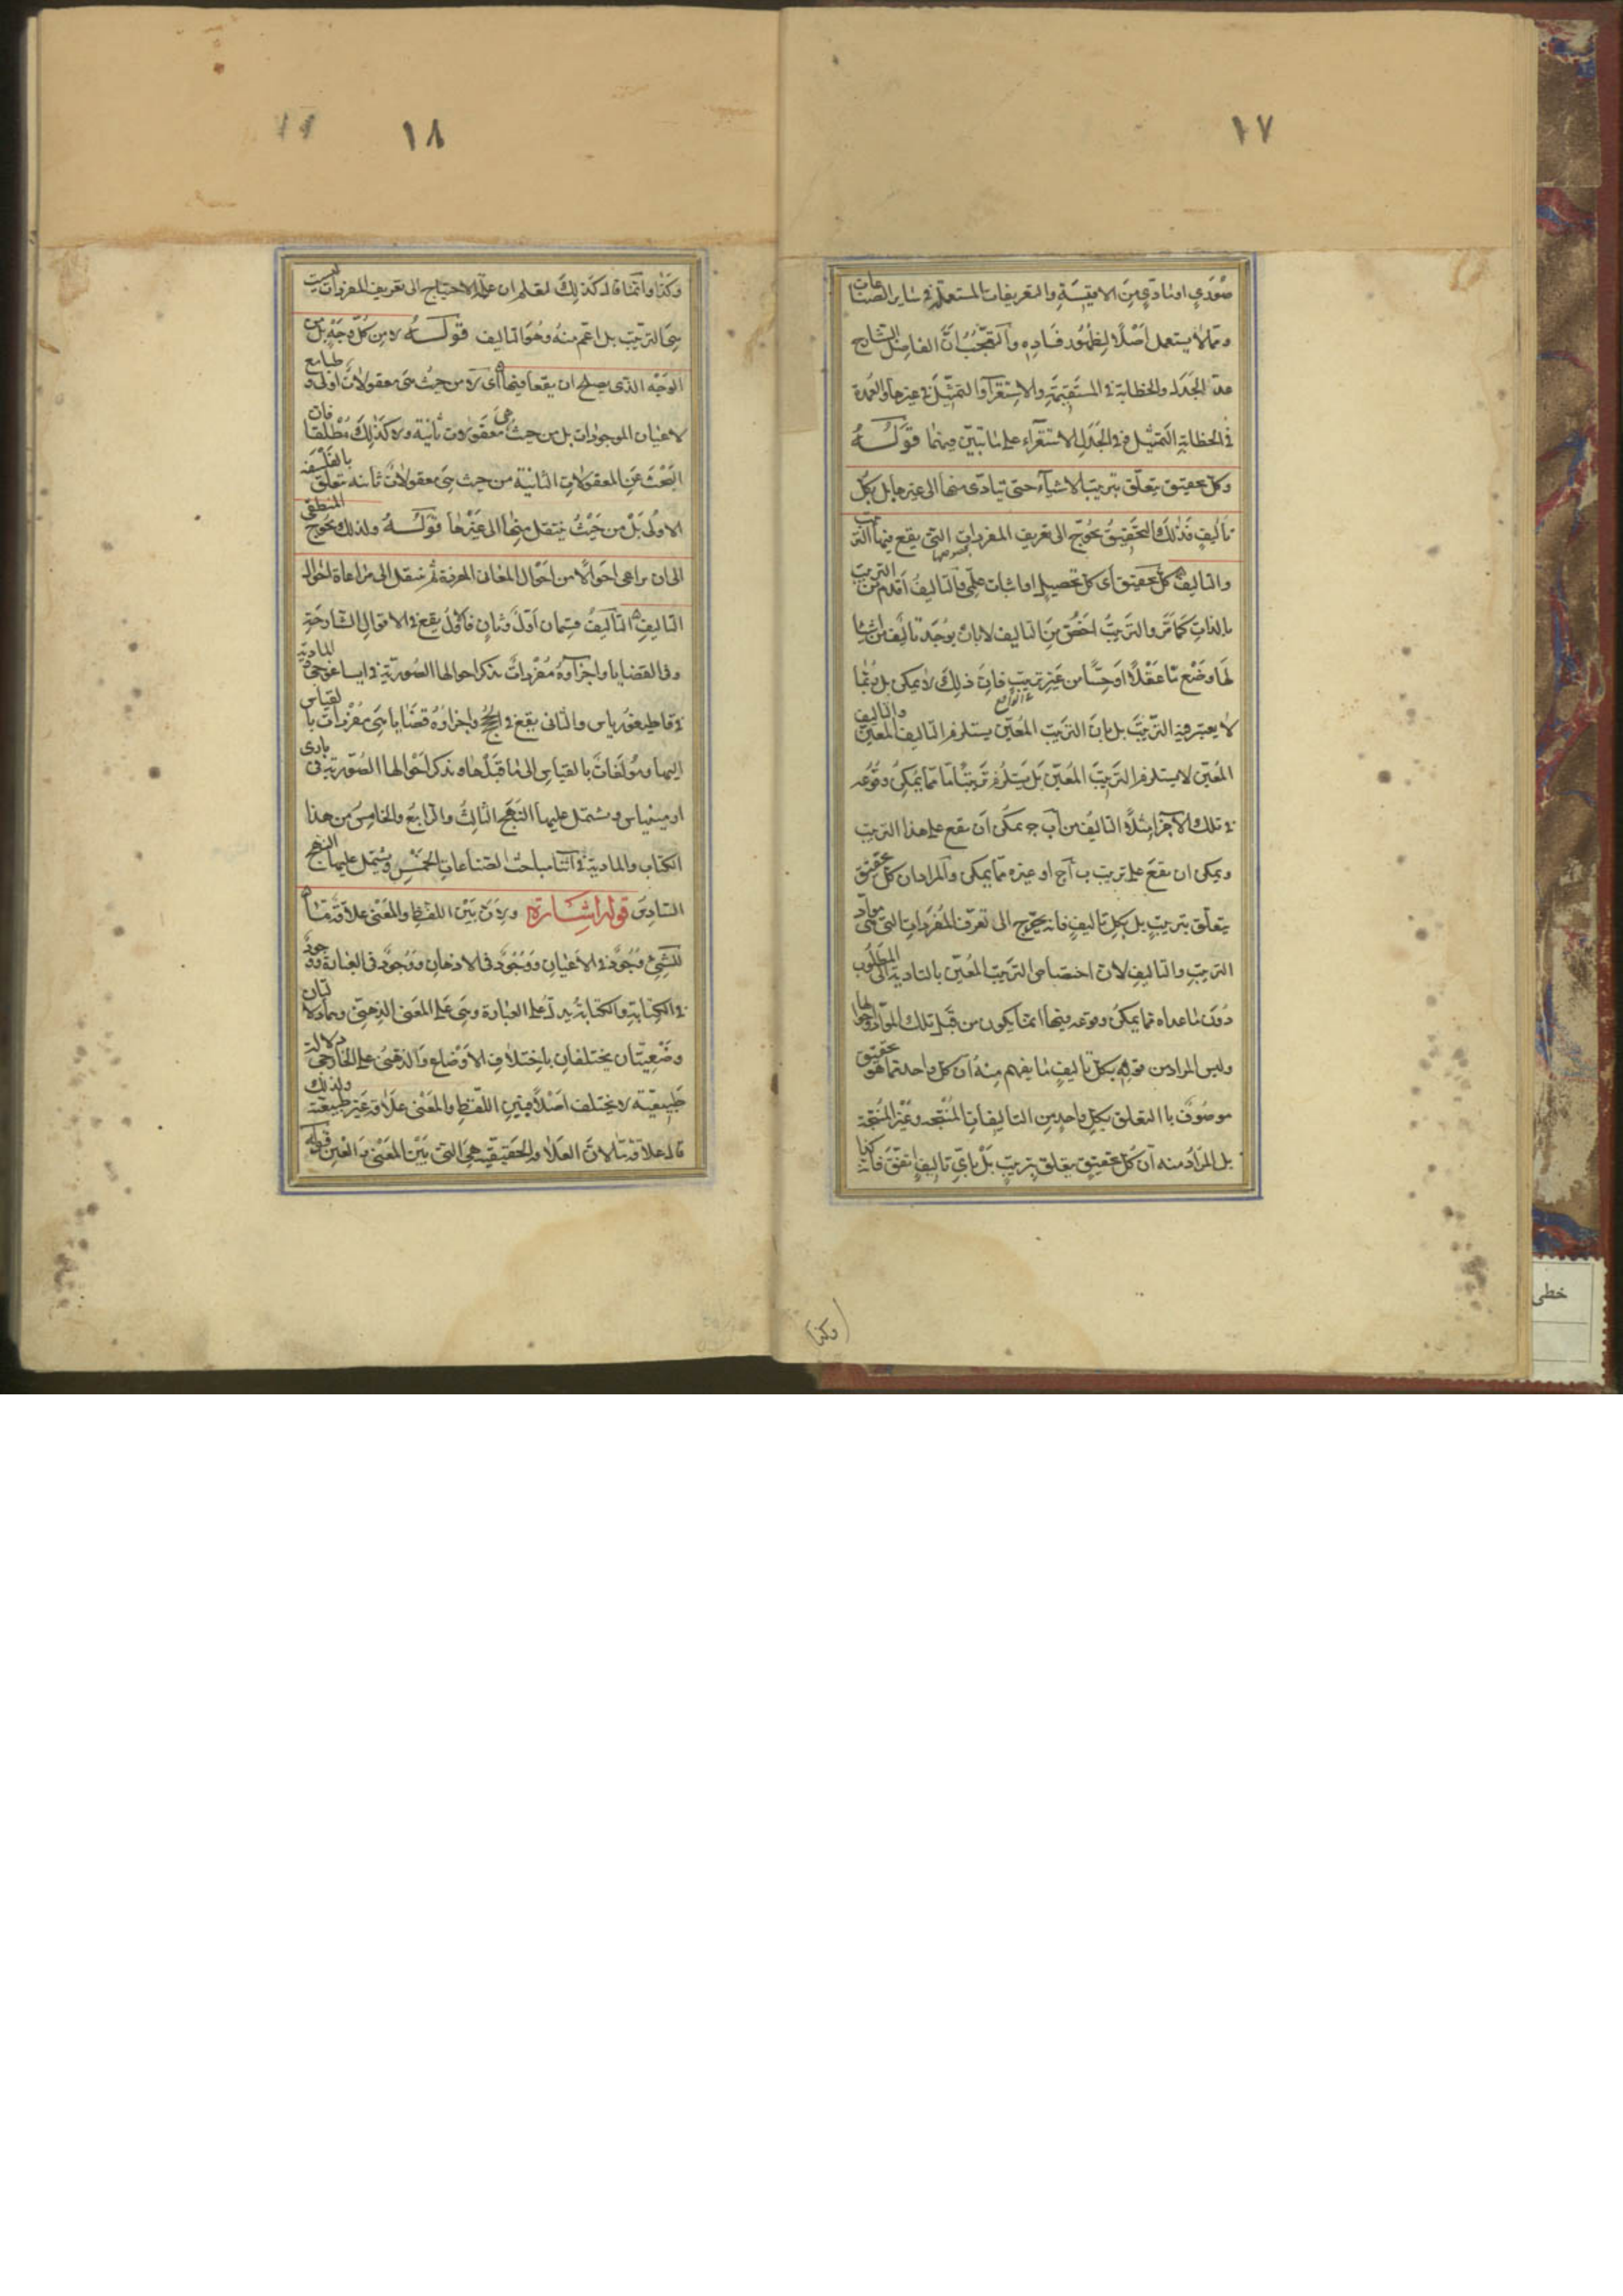 ١٧
صوري او مادي من الاقيسة والتعريفات المستعملة في ساير الصناعات
ومما لا يستعمل اصلا لظهور فساده والتعجب ان الفاضل الشارح
عد الجدل والخطابة في المستقيمة والاستقرآ والتمثيل في غيرها والعمدة
في الخطابة التمثيل وفي الجدل الاستقرآء على ما تبين فيهما قوله
وكل تحقيق يتعلق بترتيب الاشيآء حتى يتادى منها الى غيرها بل بكل
تأليف فذلك التحقيق يحوج الى تعريف المفردات التي يقع فيها الترتيب
والتاليف كل تحقيق اى كل تحصيل او اثبات علمي والتاليف اقدم من الترتيب
بالذات كما مر والترتيب اخص من التاليف لا بان يوجد تاليف من اشيا
لها وضع ما عقلا او حسا من غير ترتيب فان ذلك لا يمكن بل ربما
لا يعتبر فيه الترتيب بل بان الترتيب المعين يستلزم التاليف المعين والتاليف
المعين لا يستلزم الترتيب المعين بل يستلزم ترتيبا ما مما يمكن وقوعه
في تلك الاجزا مثلا التاليف من آ ب ج يمكن ان يقع على هذا الترتيب
ويمكن ان يقع على ترتيب ب آ ج او غيره مما يمكن والمراد ان كل تحقيق
يتعلق بترتيب بل بكل تاليف فانه يحوج الى تعرف المفردات التي هي مواد
الترتيب والتاليف لان اختصاص الترتيب المعين بالتادية الى المطلوب
دون ما عداه مما يمكن وقوعه فيها انما يكون من قبل تلك المواد واحوالها
وليس المراد من قوله بكل تاليف ما يفهم منه ان كل واحد مما هو تحقيق
موصوف بالتعلق بكل واحد من التاليفات المنتجه وغير المنتجة
بل المراد منه ان كل تحقيق يتعلق بترتيب بل باي تاليف اتفق فانه كذا
(وكذا)
١٨
وكذا وانما قال كذلك لتعلم ان علة الاحتياج الى تعريف المفردات ليست
هي الترتيب بل اعم منه وهو التاليف قوله لا من كل وجه بل من
الوجه الذى يصلح ان يقعا فيها اى لا من حيث هى معقولات اولى و طبايع
لاعيان الموجودات بل من حيث هى معقولات ثانية ولا كذلك مطلقا فان
البحث عن المعقولات الثانية من حيث هى معقولات ثانيه تتعلق بالفلسفه
الاولى بل من حيث ينتقل منها الى غيرها قوله ولذلك يحوج المنطقى
الى ان يراعى احوالا من احوال المعانى المفردة ثم ينتقل الى مراعاة احوال
التاليف التاليف قسمان اول وثان فالاول يقع في الاقوال الشارحة
وفى القضايا واجزآؤه مفردات يذكر احوالها الصورية في ايساغوجى والمادية
في قاطيغورياس والثانى يقع في الحجج واجزاؤه قضايا هى مفردات بالقياس
اليها ومولفات بالقياس الى ما قبلها و يذكر احوالها الصورية فى بارى
ارمينياس ويشتمل عليها النهج الثالث والرابع والخامس من هذا
الكتاب والمادية في اثنا مباحث الصناعات الخمس ويشتمل عليها النهج
السادس قوله اشارة ولان بين اللفظ والمعنى علاقة ما
للشئ وجود في الاعيان ووجود في الاذهان ووجود فى العبارة ووجود
في الكتابة والكتابة تدل على العبارة وهى على المعنى الذهنى وهما دلالتان
وضعيتان يختلفان باختلاف الاوضاع والذهنى على الخارجى دلالة
طبيعية لا يختلف اصلا فبين اللفظ والمعنى علاقة غير طبيعية ولذلك
قال علاقة ما لان العلاقة الحقيقية هى التى بين المعنى والعين قوله